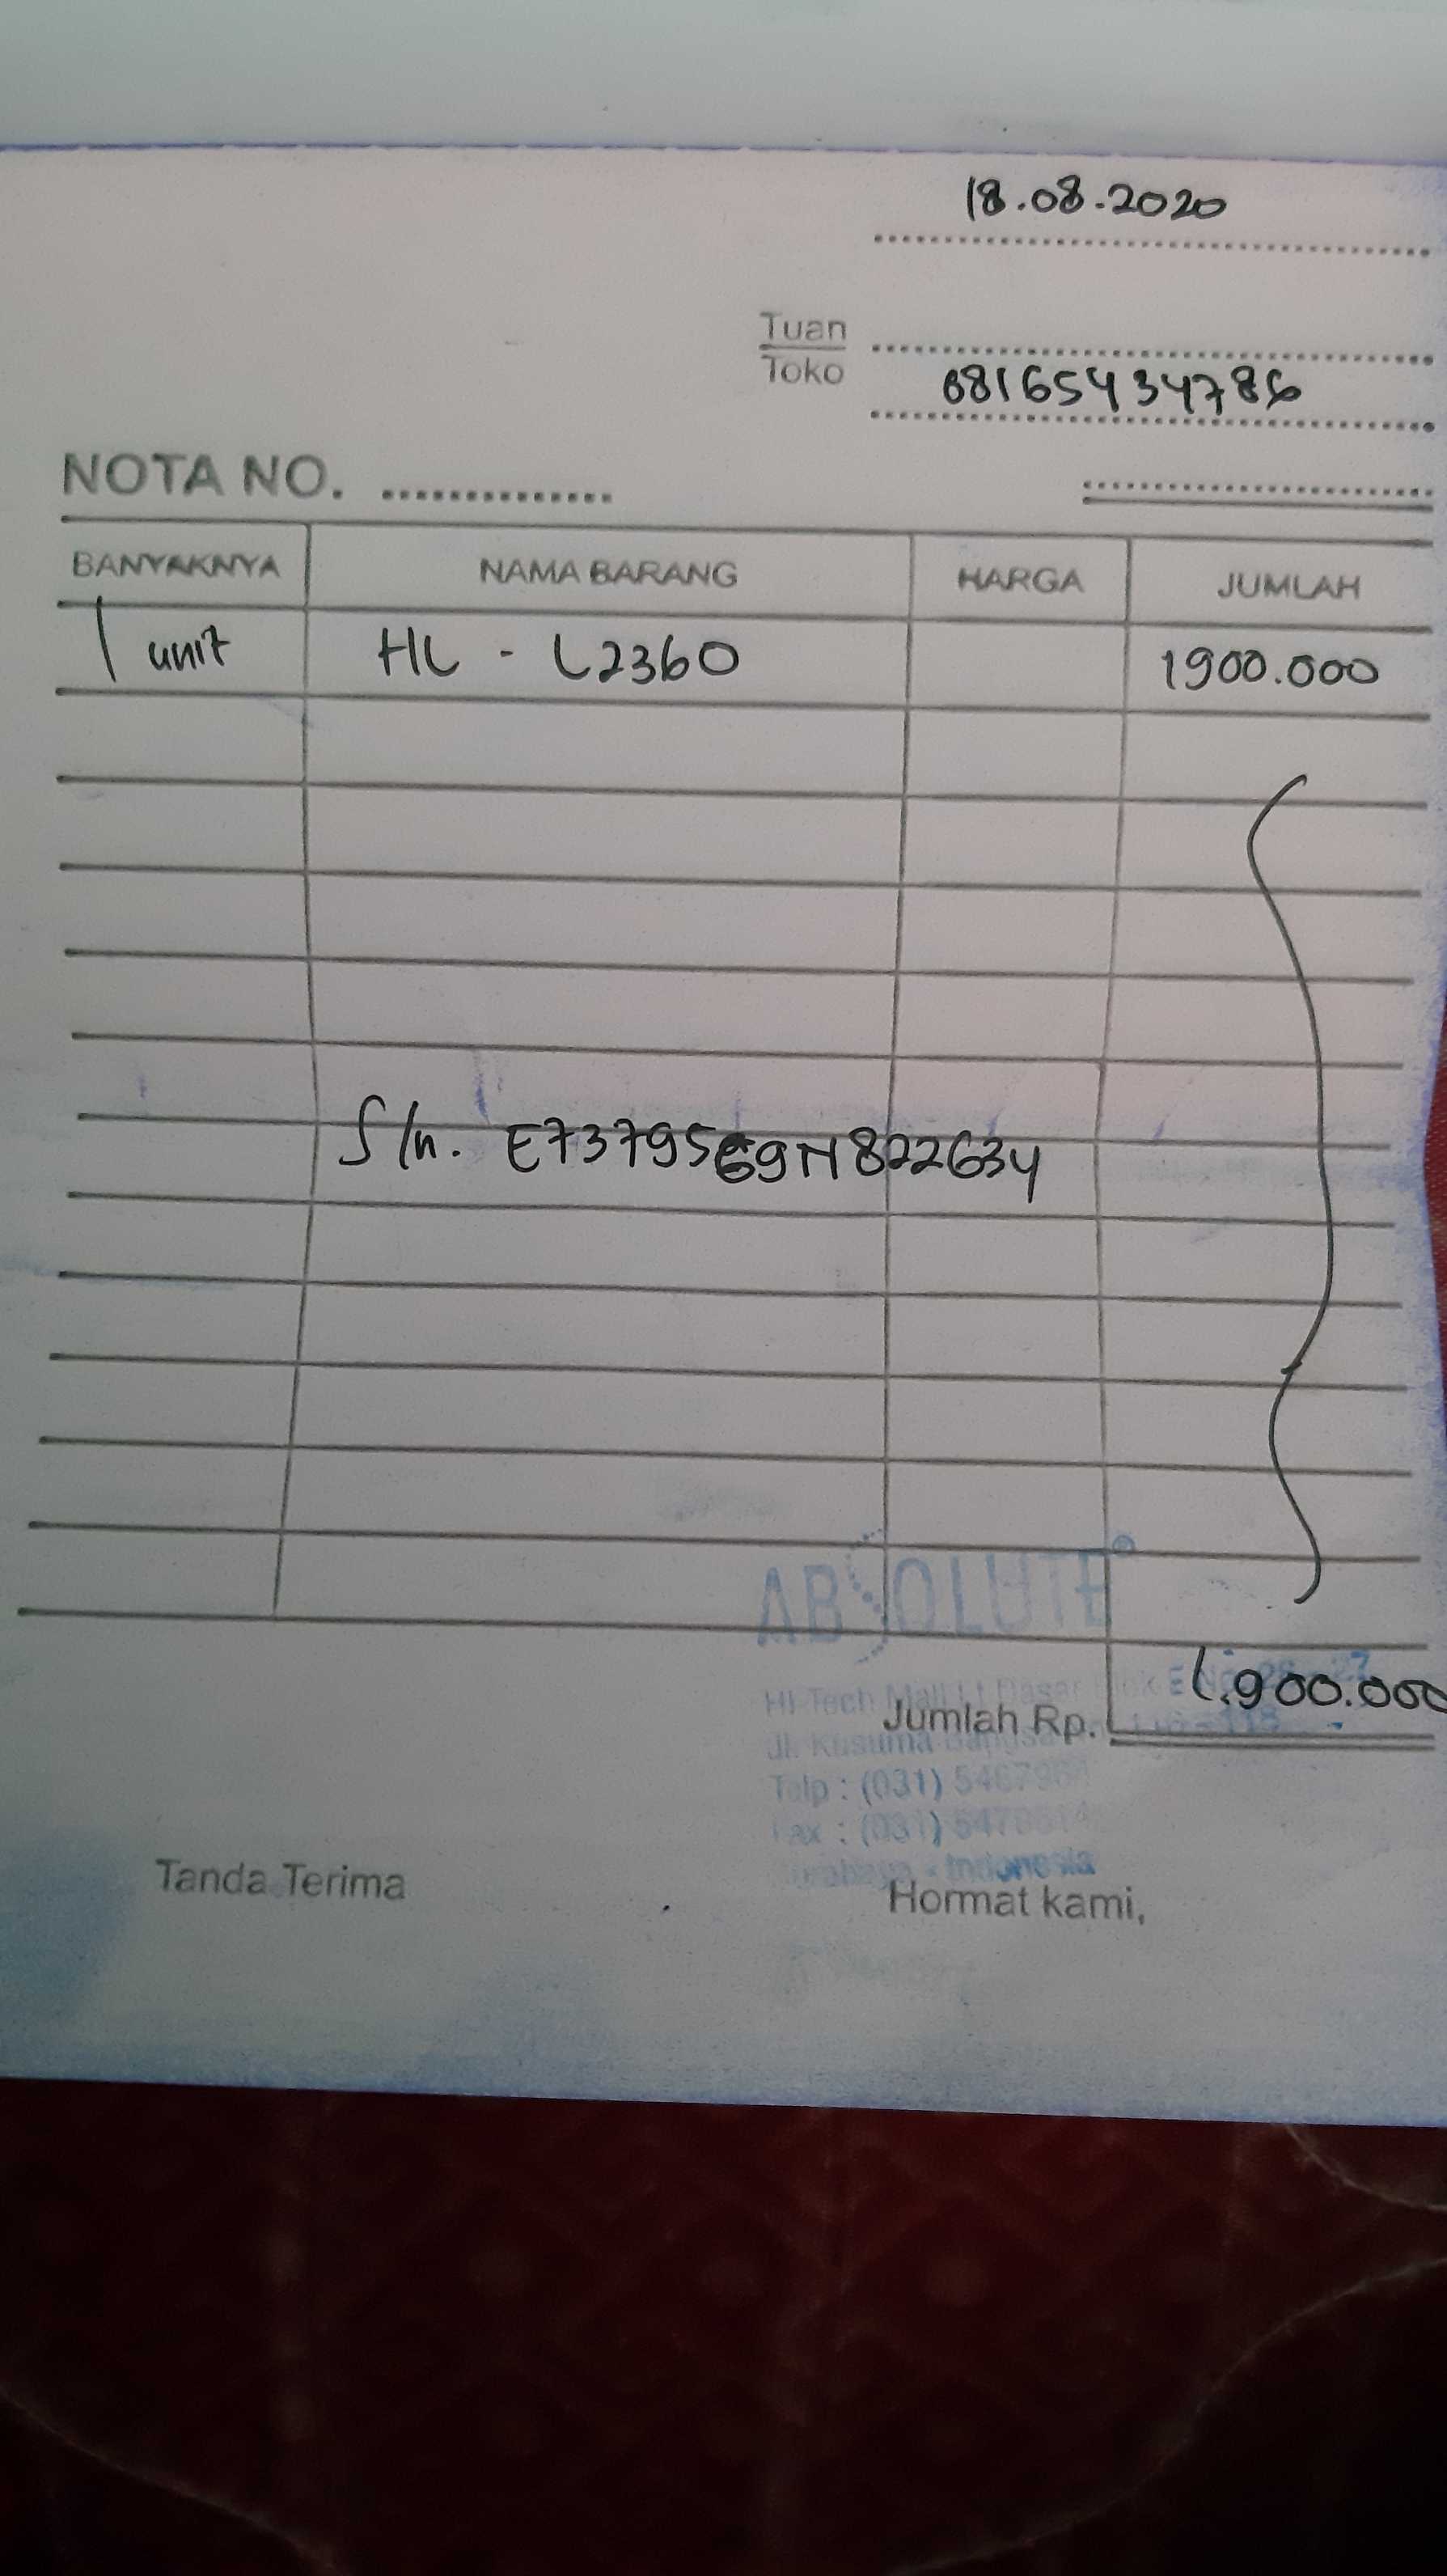 18.08.2020
Tuan
Toko
08165434786
NOTA NO.
BANYAKNYA NAMA BARANG HARGA JUMLAH
1 unit HL - L2360 1900.000
S/n. E73795G9N822634
ABSOLUTE
1.900.000
Hi-Tech Mall Lt Dasar
Jumlah Rp.
Jl. Kusuma Bangsa
Telp : (031)
Fax : (031)
Surabaya - Indonesia
Tanda Terima
Hormat kami,